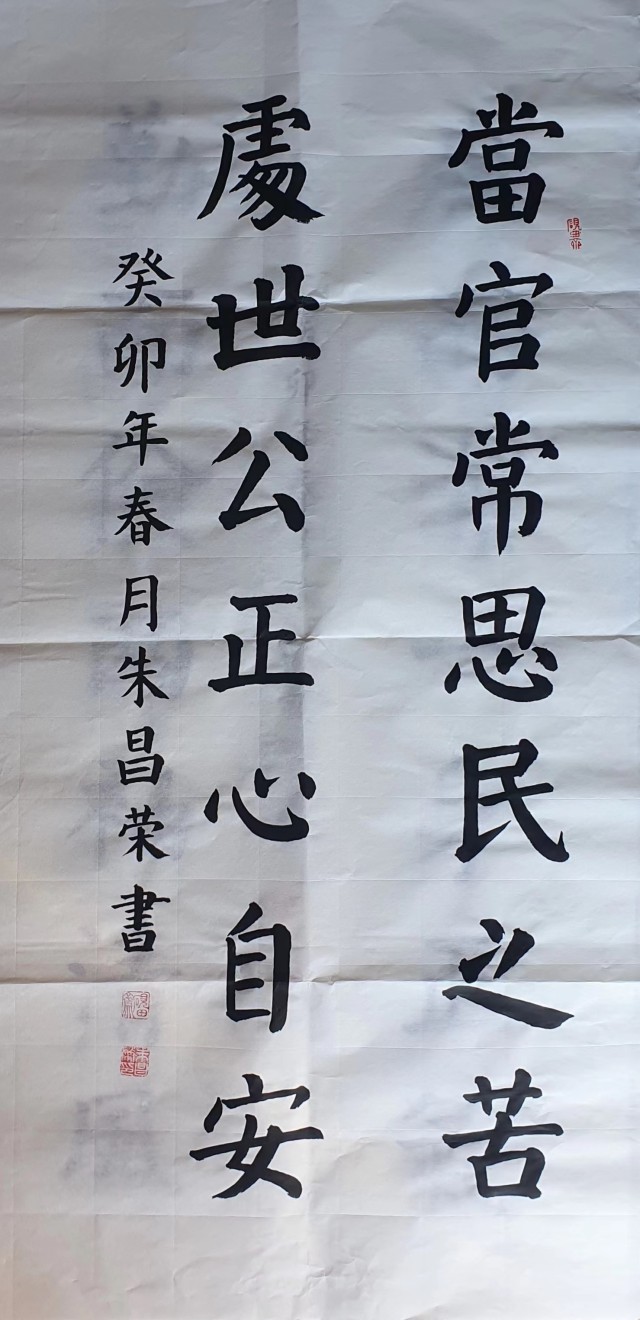 當官常思民之苦
處世公正心自安
癸卯年春月朱昌荣書